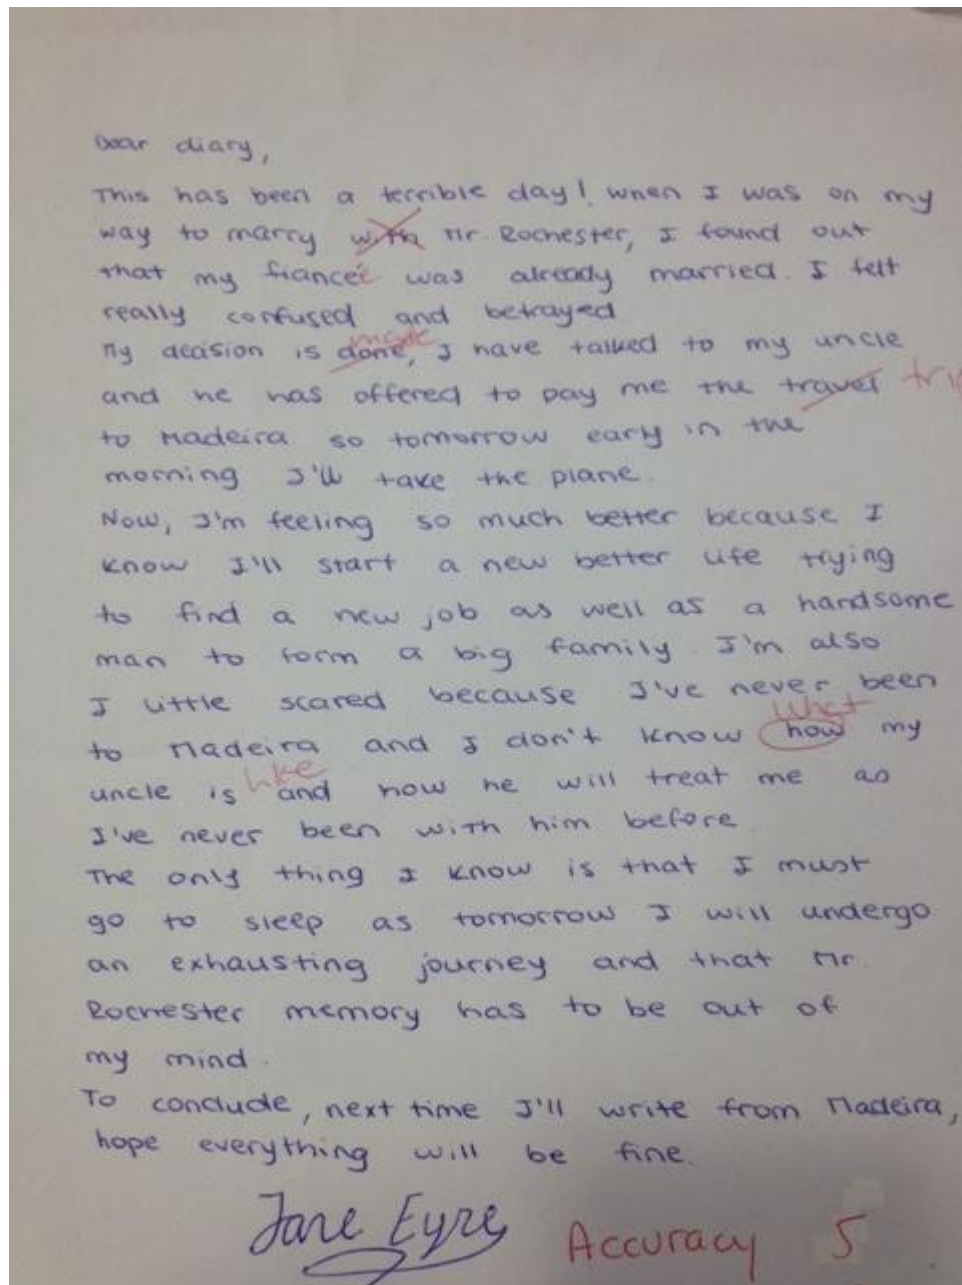 Dear diary,
This has been a terrible day! when I was on my
way to marry with Mr. Rochester, I found out
that my fianceé was already married. I felt
really confused and betrayed
made
My decision is done, I have talked to my uncle
and he has offered to pay me the travel trip
to Madeira so tomorrow early in the
morning I'll take the plane.
Now, I'm feeling so much better because I
know I'll start a new better life trying
to find a new job as well as a handsome
man to form a big family. I'm also
I little scared because I've never been
what
to Madeira and I don't know how my
like
uncle is and how he will treat me as
I've never been with him before.
The only thing I know is that I must
go to sleep as tomorrow I will undergo
an exhausting journey and that Mr.
Rochester memory has to be out of
my mind.
To conclude, next time I'll write from Madeira,
hope everything will be fine.
Jane Eyre Accuracy 5